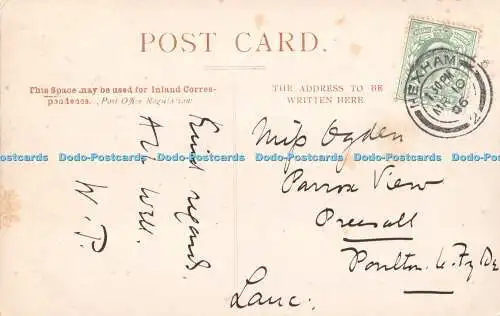 POST CARD.
This Space may be used for Inland Corres-
pondence. (Post Office Regulation.)
THE ADDRESS TO BE
WRITTEN HERE.
HEXHAM
Kind regards.
W.P.
Miss Ogden
Parrox View
Preesall
Poulton-le-Fylde
Lanc:
Dodo-Postcards Dodo-Postcards Dodo-Postcards Dodo-Postcards Dodo-Postcards